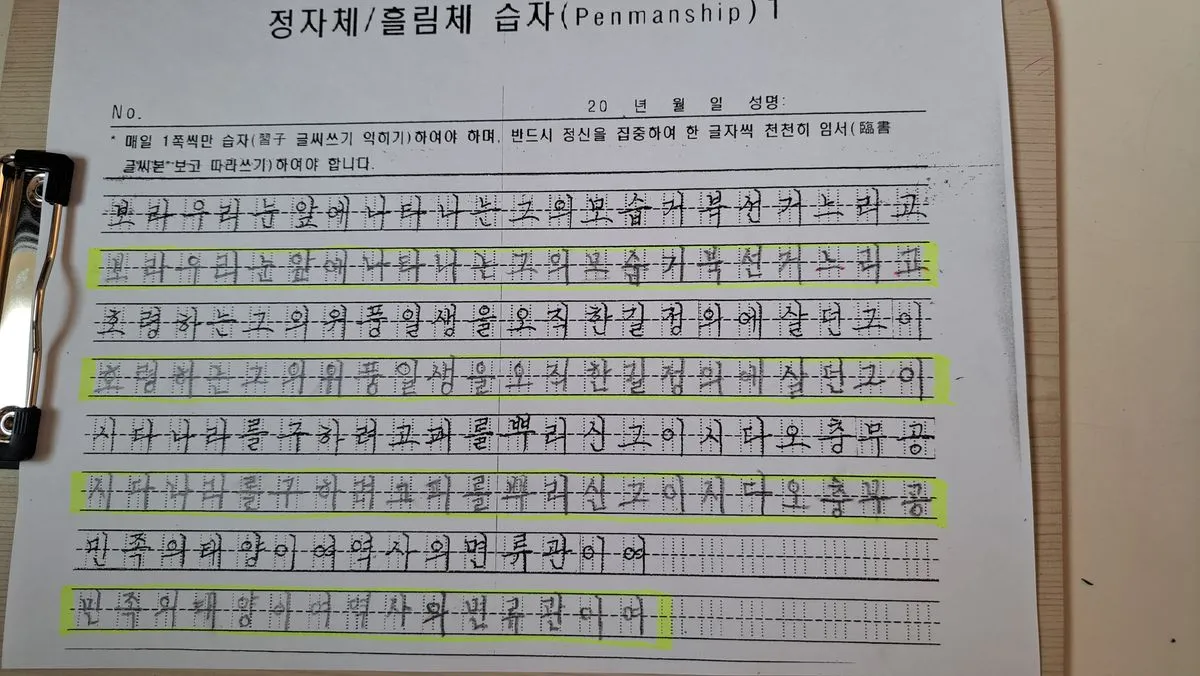 정자체/흘림체 습자(Penmanship)1
No. 20 년 월 일 성명:
* 매일 1쪽씩만 습자(習子 글씨쓰기 익히기)하여야 하며, 반드시 정신을 집중하여 한 글자씩 천천히 임서(臨書
글씨본 보고 따라쓰기)하여야 합니다.
보라우리눈앞에나타나는그의모습거북선거느리고
보라우리눈앞에나타나는그의모습거북선거느리고
호령하는그의위풍일생을오직한길정의에살던그이
호령하는그의위풍일생을오직한길정의에살던그이
시다나라를구하려고피를뿌리신그이시다오충무공
시다나라를구하려고피를뿌리신그이시다오충무공
민족의태양이여역사의면류관이여
민족의태양이여역사의면류관이여